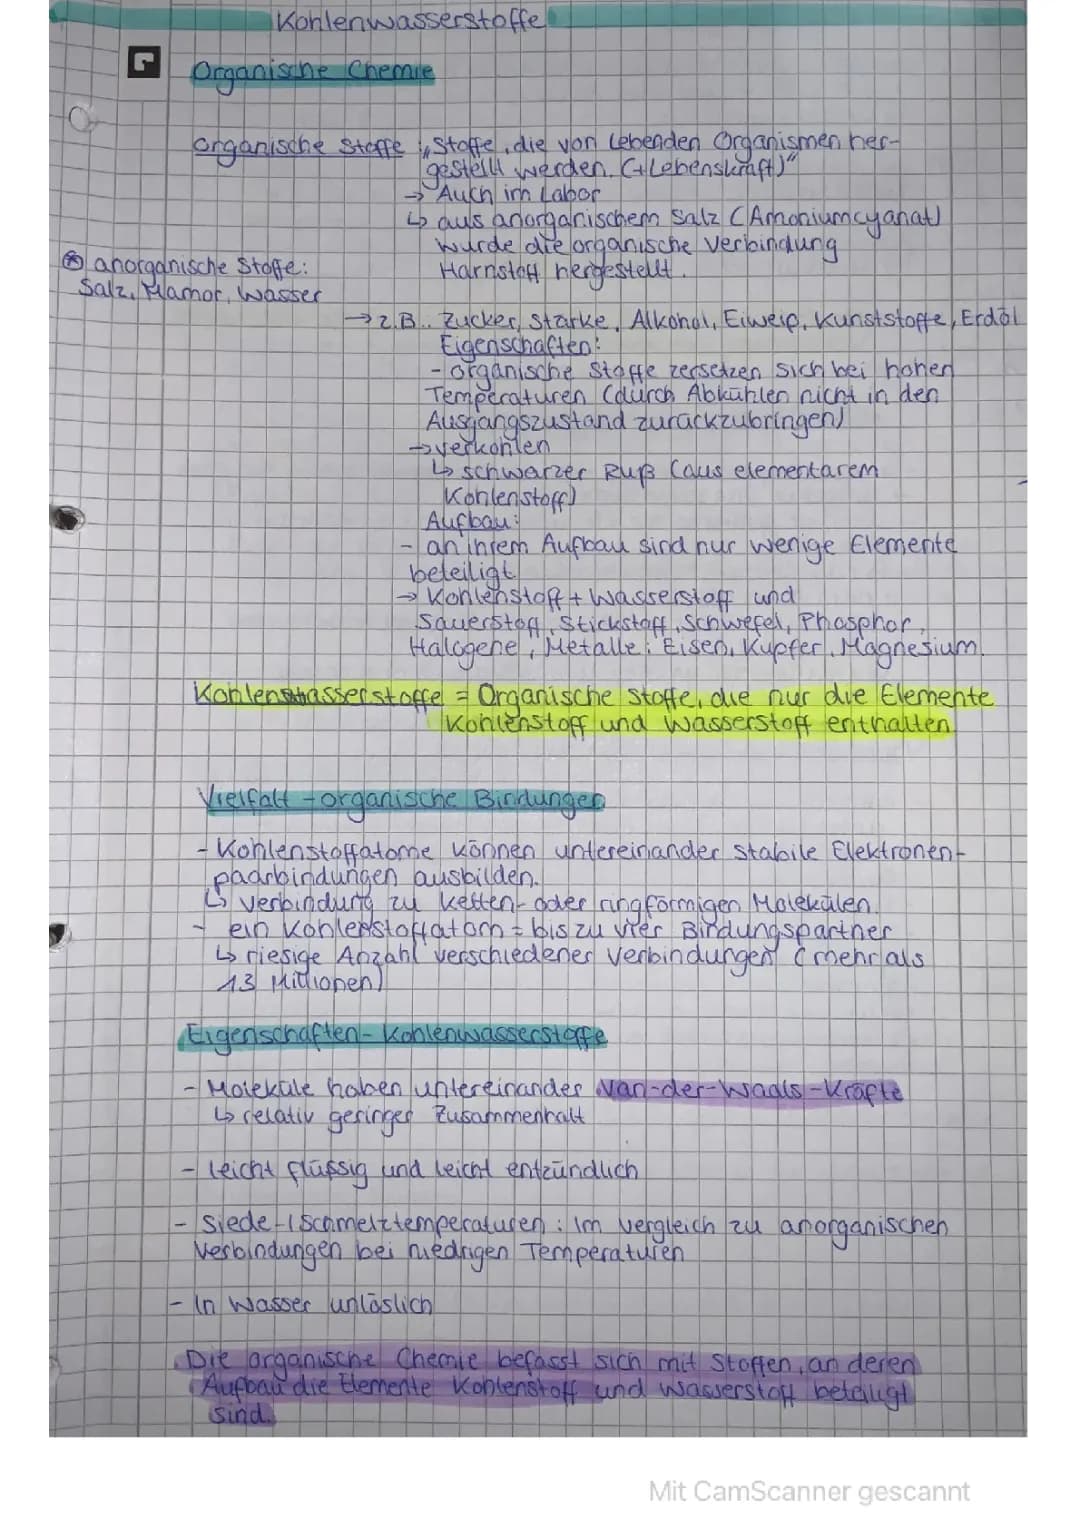 Kohlenwasserstoffe
Organische Chemie
organische Stoffe „Stoffe, die von Lebenden Organismen her-
gestellt werden. (+Lebenskraft)“
→ Auch im Labor
↳ aus anorganischem Salz (Amoniumcyanat)
wurde die organische Verbindung
Harnstoff hergestellt.
⊛ anorganische Stoffe:
Salz, Mamor, Wasser
→ z.B.. Zucker, Stärke, Alkohol, Eiweiß, Kunststoffe, Erdöl
Eigenschaften:
- organische Stoffe zersetzen sich bei hohen
Temperaturen (durch Abkühlen nicht in den
Ausgangszustand zurückzubringen)
→ verkohlen
↳ schwarzer Ruß (aus elementarem
Kohlenstoff)
Aufbau:
- an ihrem Aufbau sind nur wenige Elemente
beteiligt
→ Kohlenstoff + Wasserstoff und
Sauerstoff, Stickstoff, Schwefel, Phosphor,
Halogene, Metalle: Eisen, Kupfer, Magnesium.
Kohlenwasserstoffe = Organische Stoffe, die nur die Elemente
Kohlenstoff und Wasserstoff enthalten.
Vielfalt - organische Bindungen
- Kohlenstoffatome können untereinander stabile Elektronen-
paarbindungen ausbilden.
↳ Verbindung zu ketten- oder ringförmigen Molekülen.
- ein Kohlenstoffatom = bis zu vier Bindungspartner
↳ riesige Anzahl verschiedener Verbindungen (mehr als
13 Millionen)
Eigenschaften - Kohlenwasserstoffe
- Moleküle haben untereinander Van-der-Waals-Kräfte
↳ relativ geringer Zusammenhalt
- leicht flüssig und leicht entzündlich
- Siede-/Schmelztemperaturen: Im Vergleich zu anorganischen
Verbindungen bei niedrigen Temperaturen
- In Wasser unlöslich
Die organische Chemie befasst sich mit Stoffen, an deren
Aufbau die Elemente Kohlenstoff und Wasserstoff beteiligt
sind.
Mit CamScanner gescannt